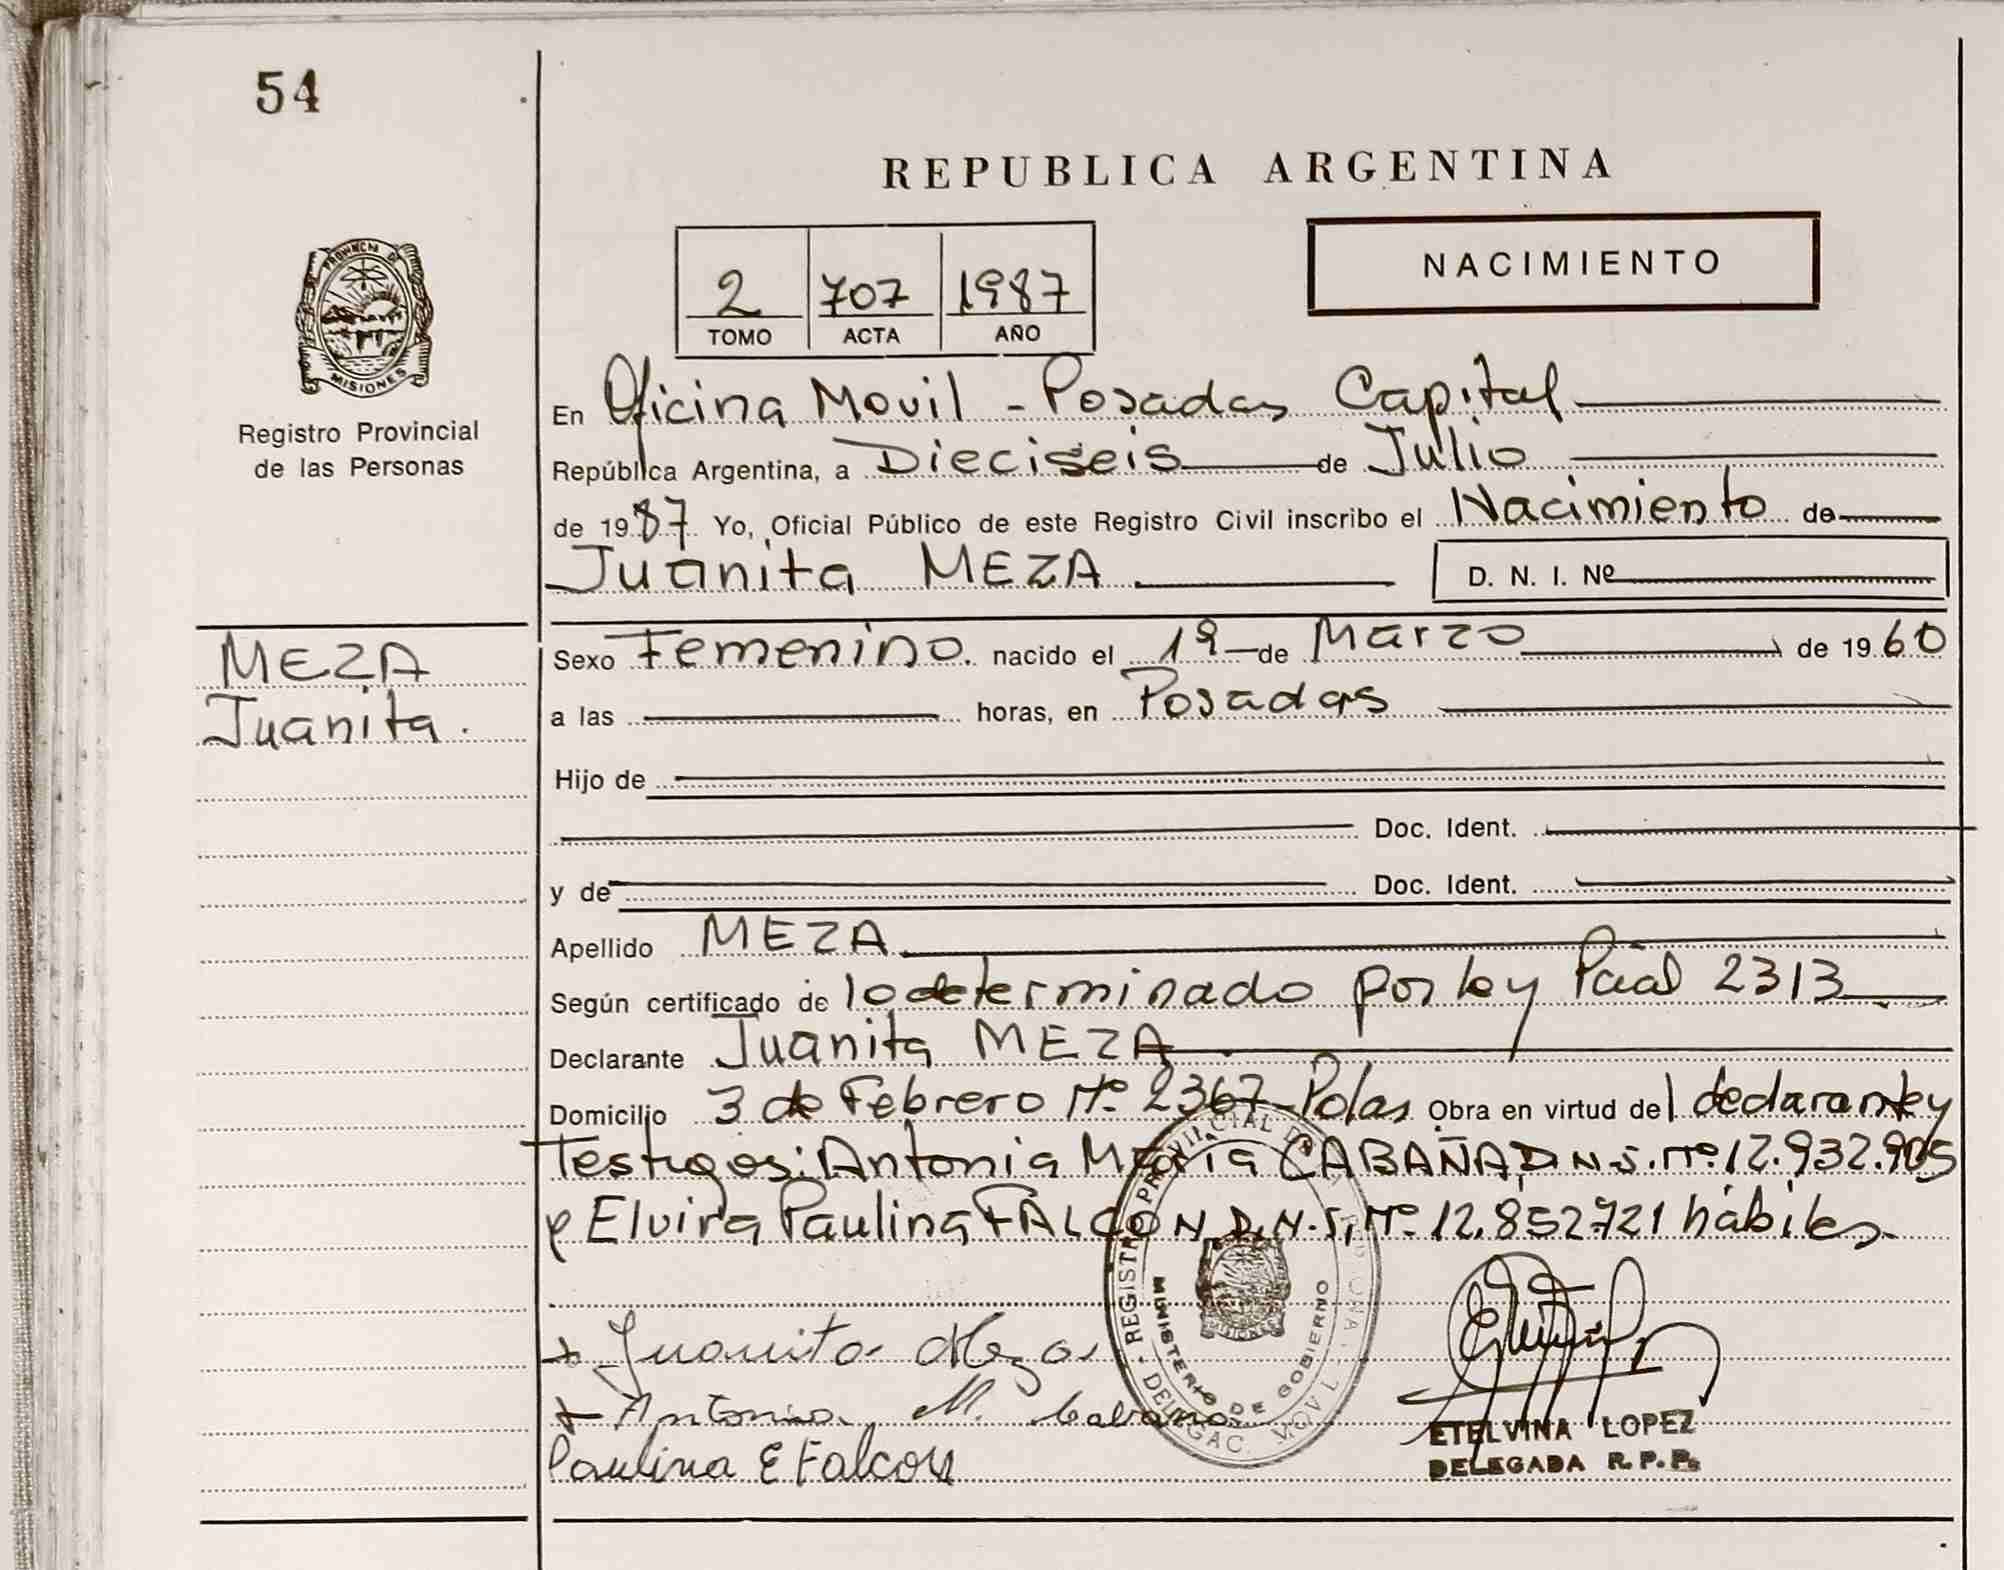 54
REPUBLICA ARGENTINA
PROVINCIA DE
MISIONES
Registro Provincial
de las Personas
2 707 1987
TOMO ACTA AÑO
NACIMIENTO
En Oficina Movil - Posadas Capital
República Argentina, a Dieciseis de Julio
de 1987 Yo, Oficial Público de este Registro Civil inscribo el Nacimiento de
Juanita MEZA D. N. I. Nº
MEZA
Juanita.
Sexo Femenino. nacido el 19 de Marzo de 1960
a las horas, en Posadas
Hijo de
Doc. Ident.
y de Doc. Ident.
Apellido MEZA
Según certificado de lo determinado por ley Pcial 2313
Declarante Juanita MEZA
Domicilio 3 de Febrero Nº 2367 - Pdas Obra en virtud del declarante y
Testigos: Antonia Maria CABAÑA D.N.I. Nº 12.932.905
y Elvira Paulina FALCON. D.N.I. Nº 12.852721 hábiles.
Juanita Meza
Antonia M. Cabaña
Paulina E Falcon
REGISTRO PROVINCIAL DE
MINISTERIO DE GOBIERNO
DELEGAC. MOVIL
ETELVINA LOPEZ
DELEGADA R.P.P.